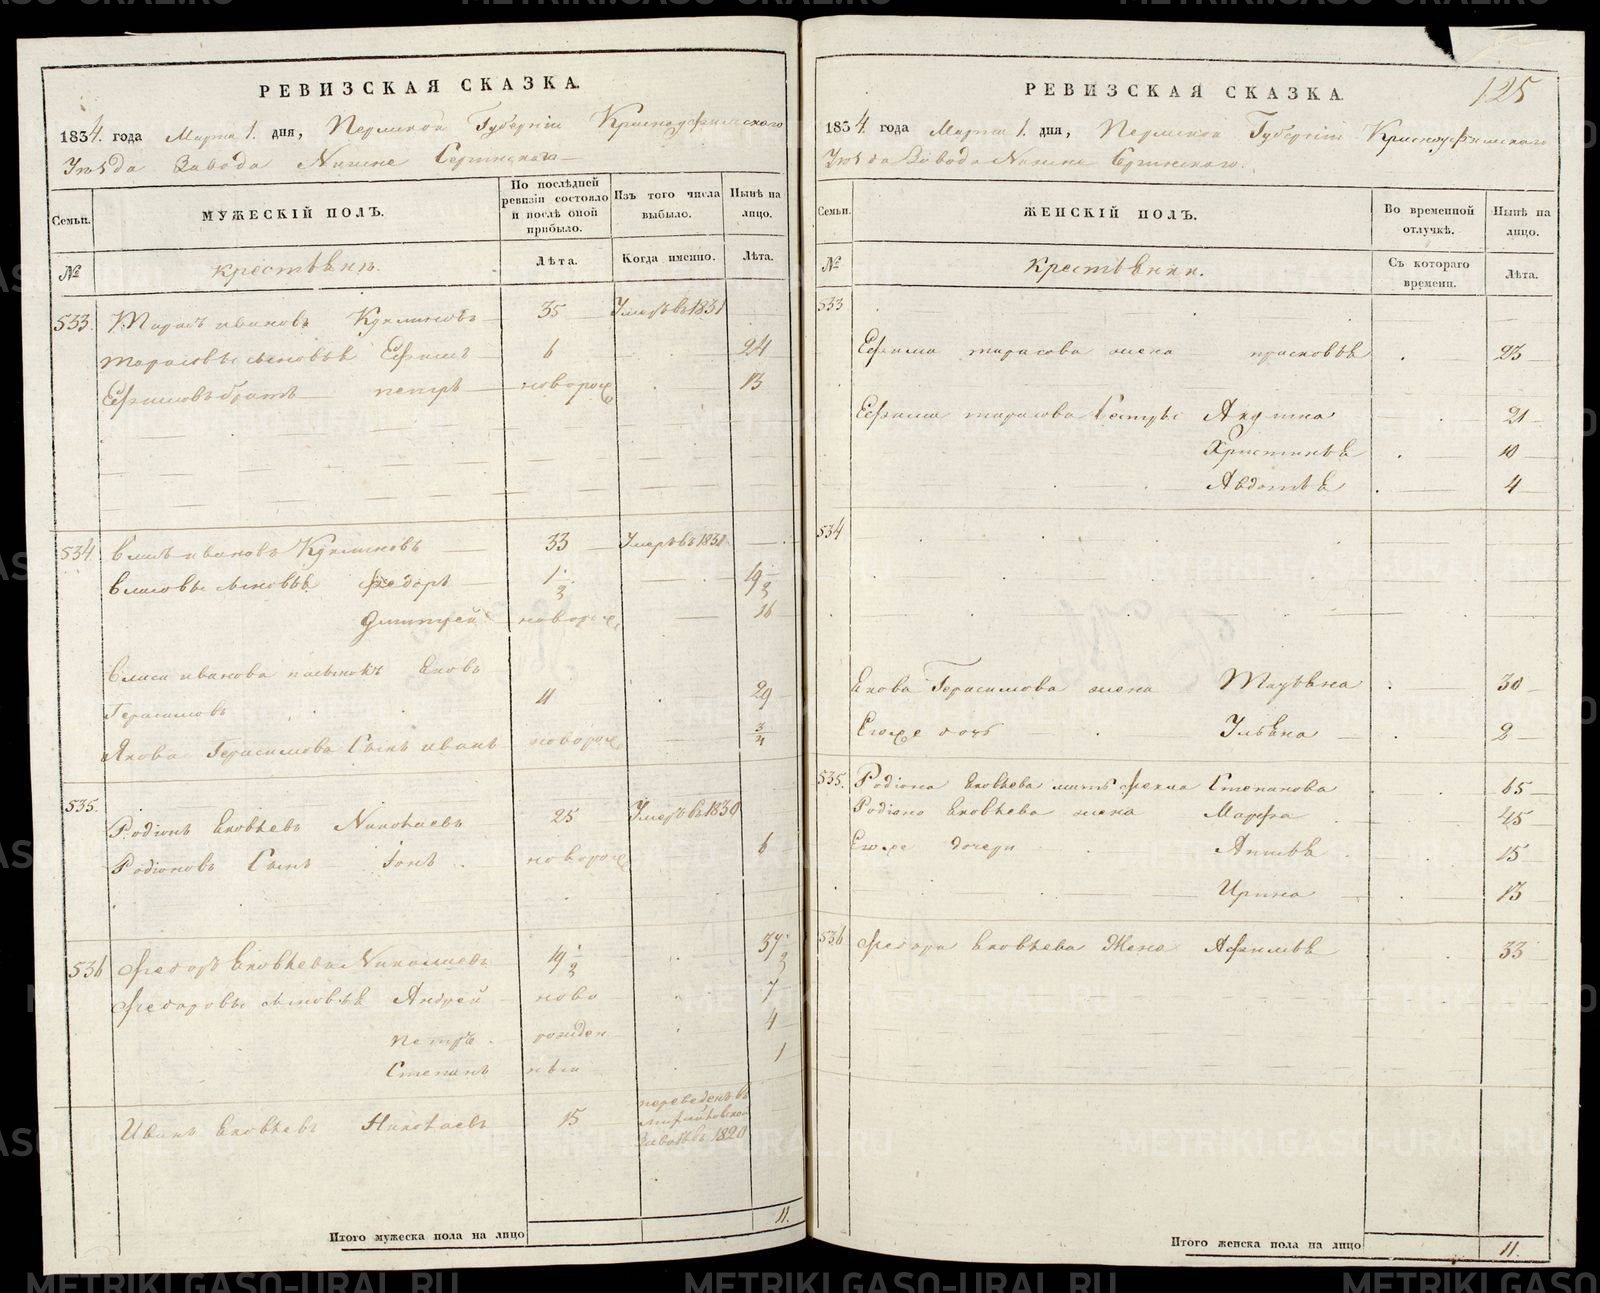 РЕВИЗСКАЯ СКАЗКА.
1834. года Марта 1. дня, Пермской Губерніи Красноуфимского
Уѣзда Завода Нижне Сергинского
Семьи.
МУЖЕСКІЙ ПОЛЪ.
По послѣдней ревизіи состояло и послѣ оной прибыло.
Изъ того числа выбыло.
Нынѣ на лицо.
№
крестьяне.
Лѣта.
Когда именно.
Лѣта.
533. Тарасъ ивановъ Куклиновъ 35 Умеръ въ 1831
тарасовы сыновья Ефимъ 6 24
Ефимовъ братъ петръ новорож 13
534. Власъ ивановъ Куклиновъ 33 Умеръ въ 1831
Власовы сыновья федоръ 1 1/2 19 1/2
Дмитрей новорож 16
Власа иванова пасынокъ Яковъ
Герасимовъ 11 29
Якова Герасимова Сынъ иванъ новорож 3/4
535. Родіонъ Яковлевъ Николаевъ 25 Умеръ въ 1830
Родіоновъ Сынъ Іонъ новорож 6
536 Федоръ Яковлевъ Николаевъ 19 1/2 37 1/2
Федоровы сыновья Андрей ново 7
петръ рожден 4
Степанъ ныя 1
Иванъ Яковлевъ Николаевъ 15 переведенъ въ
Заводъ въ 1820
Итого мужеска пола на лицо 11.
125
РЕВИЗСКАЯ СКАЗКА.
1834. года Марта 1. дня, Пермской Губерніи Красноуфимского
Уѣзда Завода Нижне Сергинского.
Семьи.
ЖЕНСКІЙ ПОЛЪ.
Во временной отлучкѣ.
Нынѣ на лицо.
№
Крестьянки.
Съ котораго времени.
Лѣта.
533
Ефима тарасова жена прасковья 23
Ефима тарасова Сестры Акулина 21
Христинья 10
Авдотья 4
534
Якова Герасимова жена Татьяна 30
Егоже дочь Ульяна 2
535. Родіона Яковлева мать фекла Степанова 65
Родіона Яковлева жена Марфа 45
Егоже дочери Анисья 15
Ирина 13
536 Федора Яковлева Жена Афимья 33
Итого женска пола на лицо 11.
METRIKI.GASO-URAL.RU